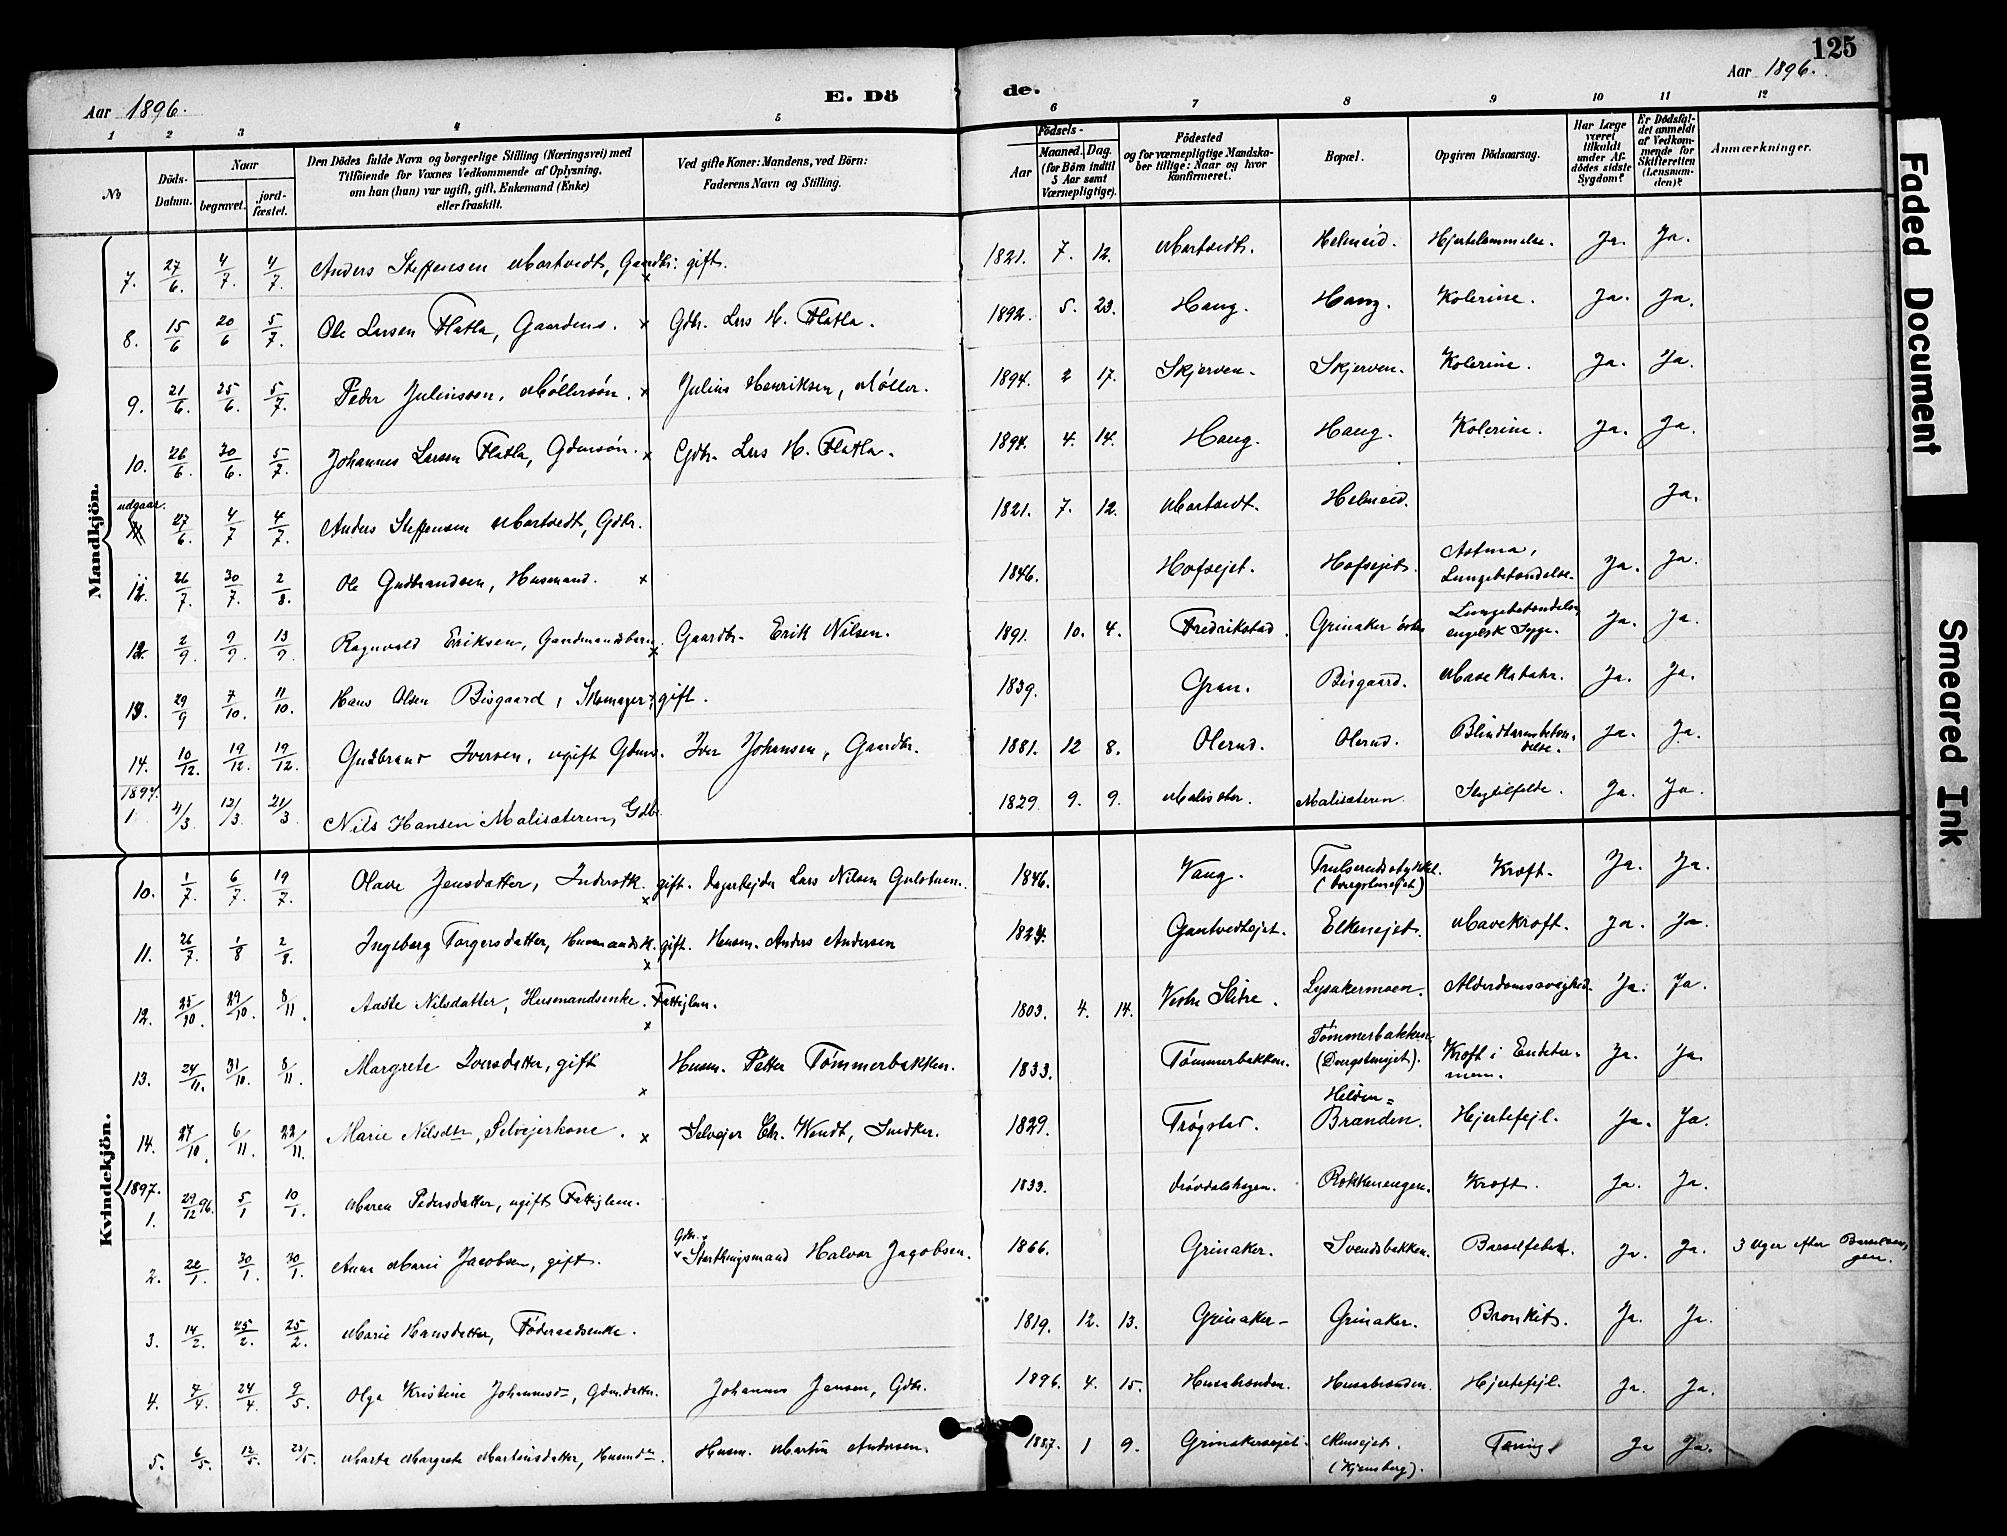 125
Aar 1896.
Aar 1896.
E. Dö
de.
1 2 3 4 5 6 7 8 9 10 11 12
No
Döds-Datum.
Naar
begravet.
jord-fæstet.
Den Dödes fulde Navn og borgerlige Stilling (Næringsvei) med
Tilföiende for Voxnes Vedkommende af Oplysning,
om han (hun) var ugift, gift, Enkemand (Enke)
eller fraskilt.
Ved gifte Koner: Mandens, ved Börn:
Faderens Navn og Stilling.
Födsels-
Aar
Maaned. Dag.
(for Börn indtil
5 Aar samt
Værnepligtige).
Födested
og for værnepligtige Mandska-
ber tillige: Naar og hvor
konfirmeret.
Bopæl.
Opgiven Dödsaarsag.
Har Læge
været
tilkaldt
under Af-
dödes sidste
Sygdom?
Er Dödsfal-
det anmeldt
af Vedkom-
mende for
Skifteretten
(Lensman-
den)?
Anmærkninger.
Mandkjön.
7. 27/6. 4/7. 4/7. Anders Steffensen Mortvedt, Gaardbr. gift. 1821. 7. 12. Mortvedt. Helmeid. Hjertelammelse. Ja. Ja.
8. 15/6 20/6 5/7. Ole Larsen Flatla, Gaardms. x Gdbr. Lars H. Flatla. 1892. 5. 23. Haug. Haug. Kolerine. Ja. Ja.
9. 21/6. 25/6. 5/7. Peder Juliussen, Møllersøn. x Julius Henriksen, Møller. 1894. 2 17. Skjerven. Skjerven. Kolerine. Ja. Ja.
10. 26/6. 30/6. 5/7. Johannes Larsen Flatla, Gdmsøn. x Gdbr. Lars H. Flatla. 1894. 4. 14. Haug. Haug. Kolerine. Ja. Ja.
udgaar.
27/6. 4/7 4/7. Anders Steffensen Mortvedt, Gdbr. 1821. 7. 12. Mortvedt. Helmeid. Ja.
12. 26/7. 30/7. 2/8. Ole Gudbrandsen, Husmand. x 1846. Hofsejet. Hofsejet. Astma, Lungebetændelse. Ja. Ja.
12. 2/9. 9/9. 13/9 Ragnvald Eriksen, Gaardmandsbarn. x Gaardbr. Erik Nilsen. 1891. 10. 4. Fredrikstad. Grinaker östre Lungebetændelse, engelsk Syge. Ja. Ja.
13. 29/9 7/10. 11/10. Hans Olsen Bisgaard, Skomager, gift. 1839. Gran. Bisgaard. Mavekatahr. Ja. Ja.
14. 10/12. 19/12. 19/12. Gudbrand Iversen, ugift Gdms. Iver Johansen, Gaardbr. 1881. 12 8. Olerud. Olerud. Blindtarmsbetændelse. Ja. Ja.
1897.
1 4/3. 12/3. 21/3 Nils Hansen Malisæteren, Gdbr. 1829. 9. 9. Malisæter. Malisæteren. Slagtilfælde. Ja. Ja.
Kvindekjön.
10. 1/7. 6/7. 19/7. Olave Jensdatter, Inderstk. x gift. Dagarbejder Lars Nilsen 1846. Vang. Trulserudstykket. Kræft. Ja. Ja.
11. 26/7. 1/8 2/8. Ingeborg Torgersdatter, Husmandsk. x gift. Husm. Anders Andersen 1824. Gamtvedtejet. Elkenejet. Mavekræft. Ja. Ja.
12. 25/10. 29/10. 8/11. Aaste Nilsdatter, Husmandsenke. x Fattiglem. 1803. 4. 14. Vestre Slidre. Lysakermoen. Alderdomssvaghed. Ja. Ja.
13. 24/11. 31/10. 8/11. Margrete Iversdatter, gift x Husm. Petter Tømmerbakken. 1833. Tømmerbakken. Tømmerbakken. (Dvergstenejet). Kræft i Endetarmen. Ja. Ja.
14. 27/10. 6/11. 22/11. Marie Nilsdtr, Selvejerkone. x Selvejer Chr. Wendt, Snedker. 1829. Trøgstad. Brænden. Hjertefejl. Ja. Ja.
1897.
1. 29/12 96. 5/1 10/1. Maren Pedersdatter, ugift Fattiglem. 1833. Rokkenengen. Kræft. Ja. Ja.
2. 22/1. 30/1. 30/1. Anne Marie Jacobsen, gift. Gdbr. & Storthingsmand Halvor Jacobsen. 1866. Grinaker. Svendsbakken. Barselfeber. Ja. Ja. 3 Uger efter Barselsengen.
3. 14/2. 25/2. 25/2. Marie Hansdatter, Føderaadsenke. 1819. 12. 13. Grinaker Grinaker. Bronkit. Ja. Ja.
4. 7/4. 24/4. 9/5. Olga Kristine Johannesd., Gdm.datter. Johannes Jensen, Gdbr. 1896. 4. 15. Husabrænden. Husabrænden. Hjertefejl. Ja. Ja.
5. 6/5. 12/5. 23/5. Marte Margrete Martinsdatter, Husmd. Husm. Martin Andersen. 1887. 1 9. Grinakerejet. (Kjensberg). Tæring. Ja Ja.
Faded Document
Smeared Ink